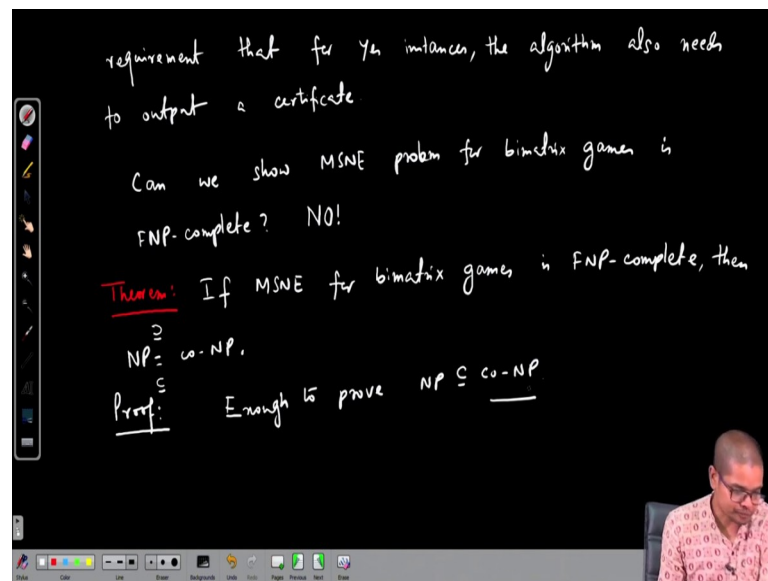 requirement that for yes instances, the algorithm also needs
to output a certificate.
Can we show MSNE problem for bimatrix games is
FNP-complete? NO!
Theorem: If MSNE for bimatrix games is FNP-complete, then
⊇
NP = co-NP.
⊆
Proof: Enough to prove NP ⊆ co-NP
Stylus Color Line Eraser Backgrounds Undo Redo Pages Previous Next Erase